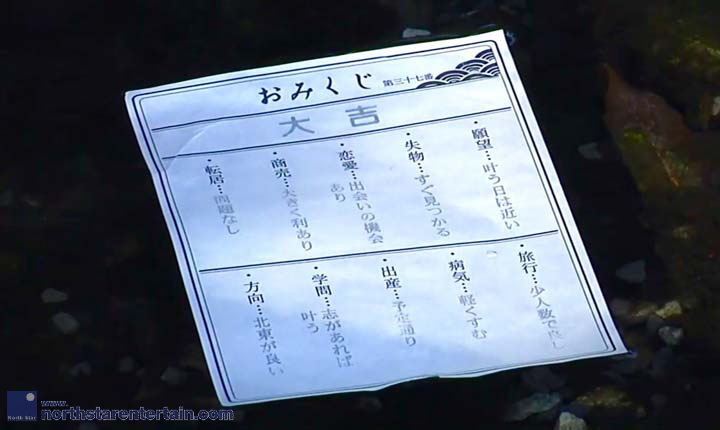 おみくじ 第三十七番
大吉
・願望…叶う日は近い
・失物…すぐ見つかる
・恋愛…出会いの機会
あり
・商売…大きく利あり
・転居…問題なし
・旅行…少人数で良し
・病気…軽くすむ
・出産…予定通り
・学問…志があれば
叶う
・方向…北東が良い
North Star
www.
northstarentertain.com